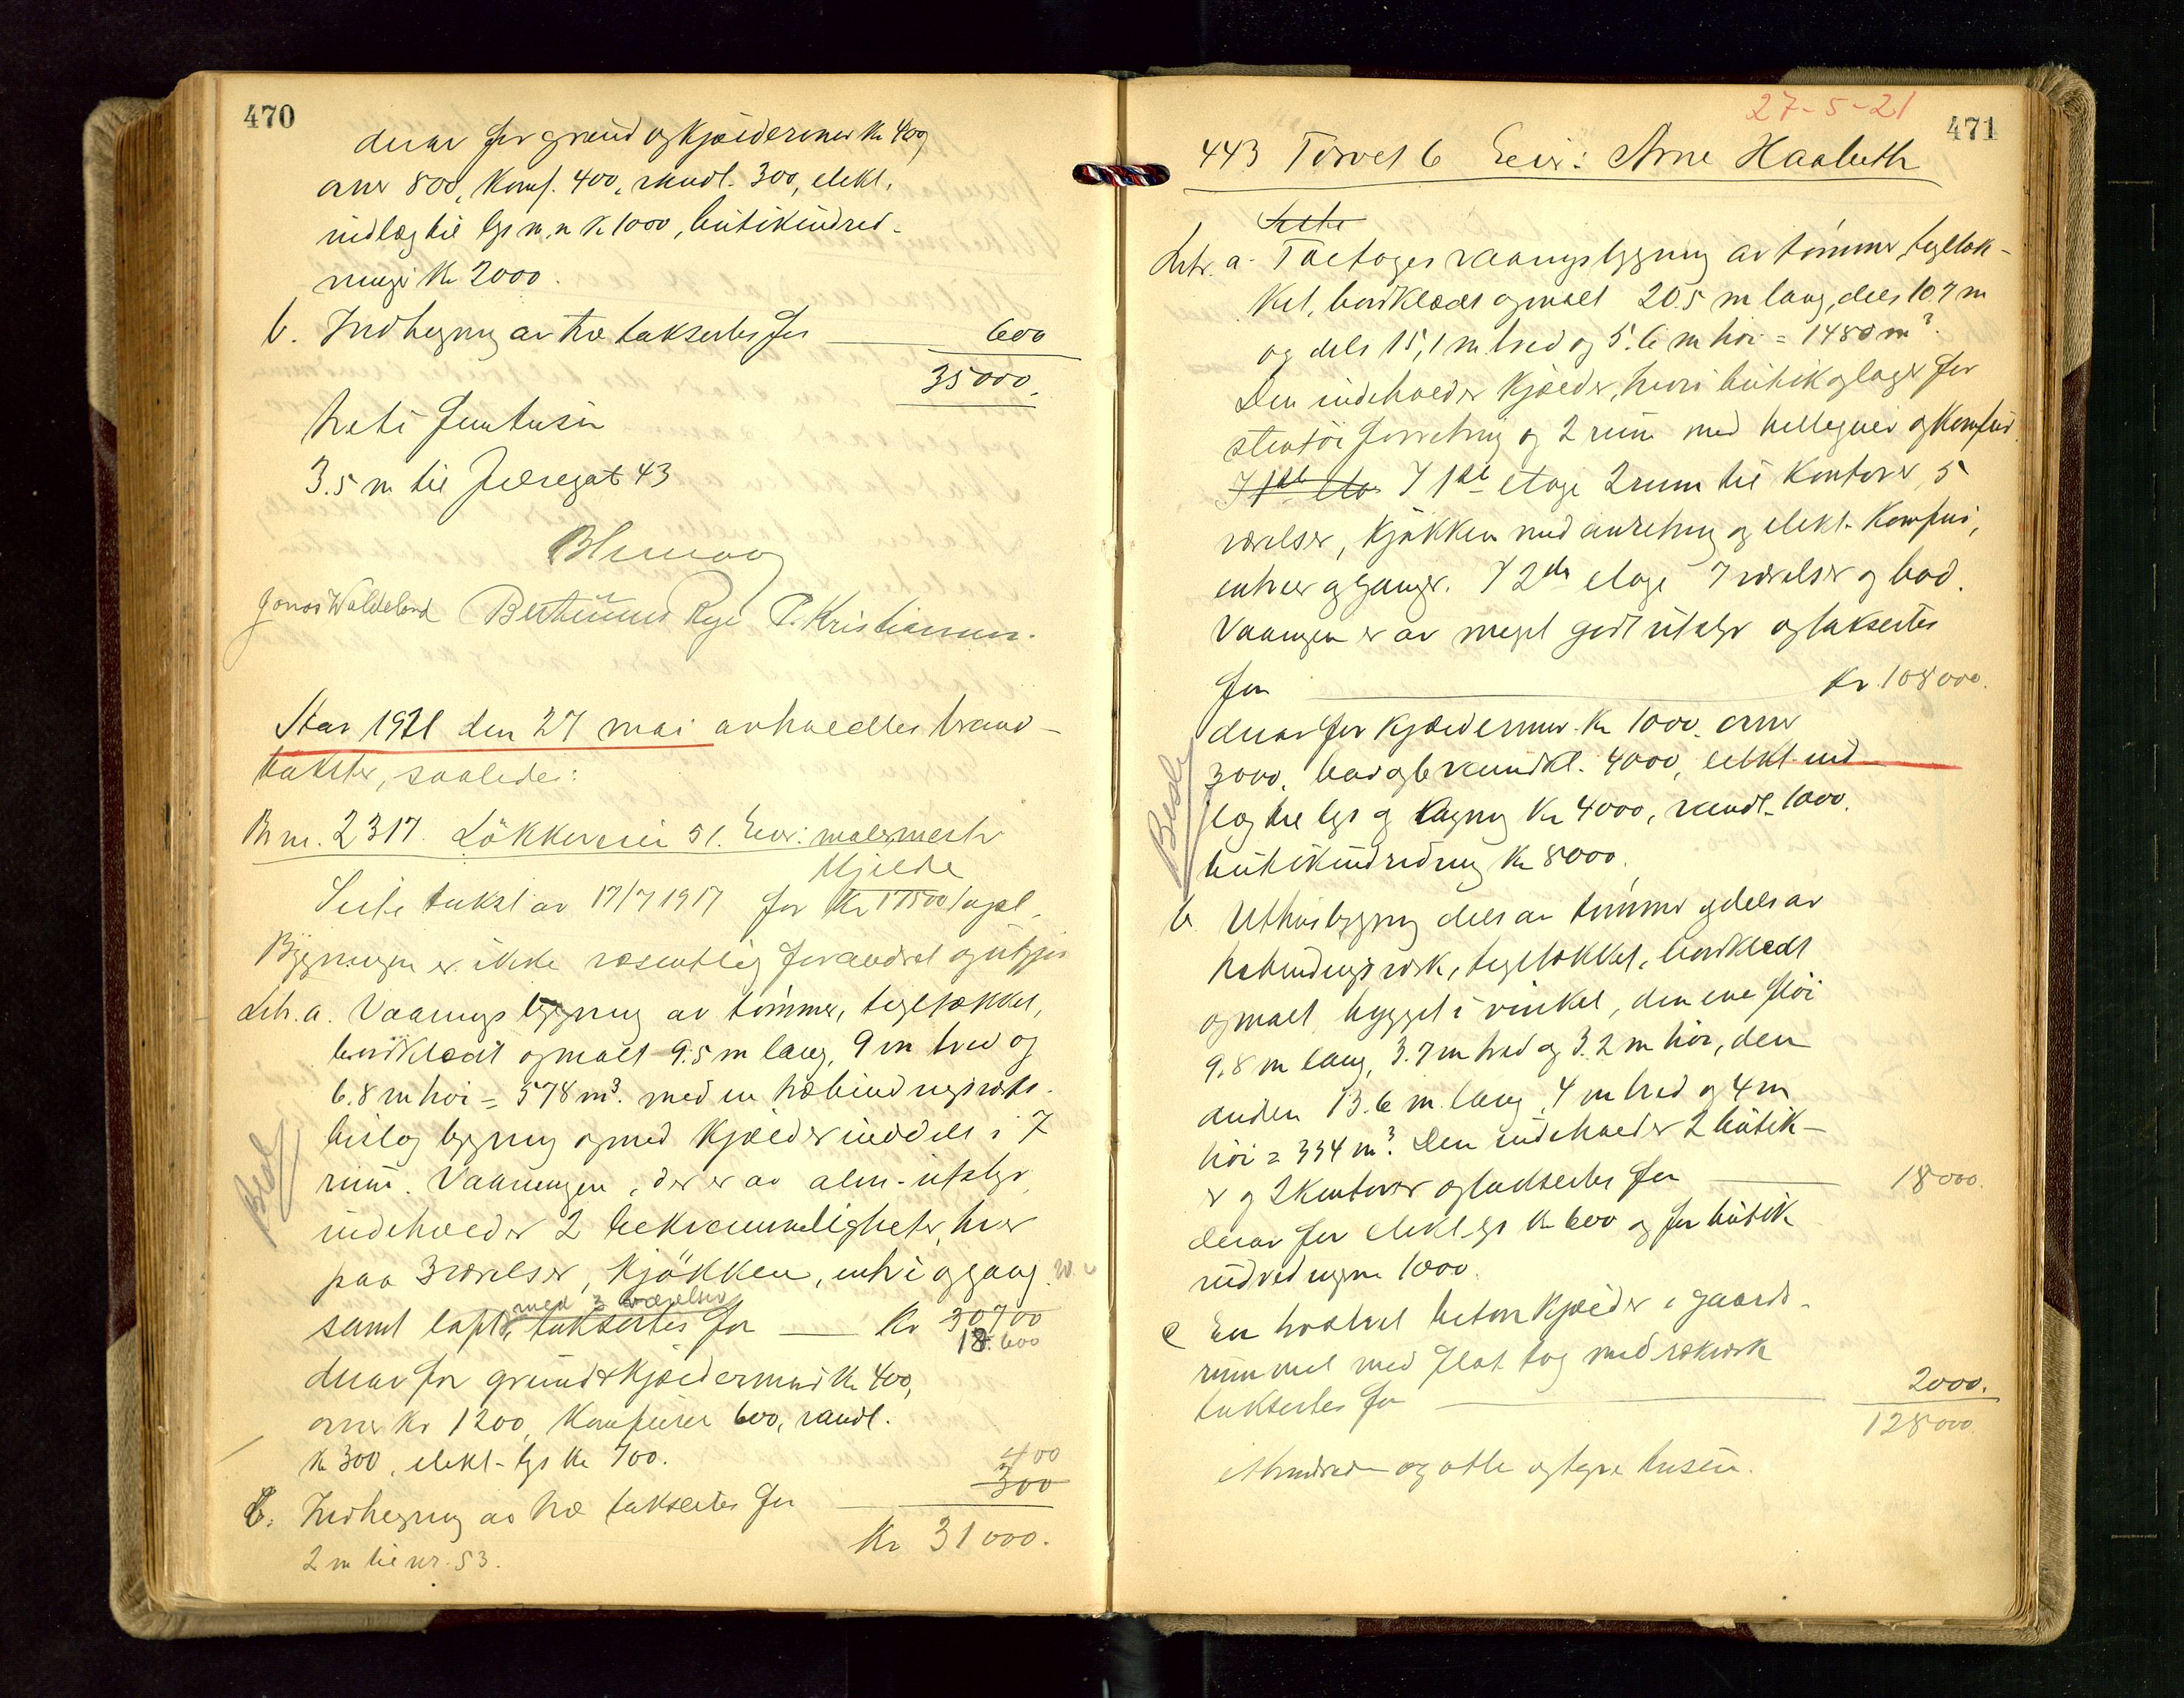 470
derav for grund og kjældermur Kr 400
ovner 800, Komf. 400, vandl. 300, elekt.
indlæg til lys m. m Kr 1000, butikindred-
ninger Kr 2000.
b. Indhegning av træ taksertes for 600
35000.
Treti femtusen
3.5 m til Jelsegat 43
Jonas Waldeland Bertinius Rege P. Kristiansen.
Aar 1921 den 27 mai avholdtes brand-
takster, saaledes:
Br nr. 2317. Lökkeveien 51. Eier: malermester
Mjelde
Siste takst av 17/7 1917 for Kr 17500
Bygningen er ikke væsentlig forandret og utgjør
Litr. a. Vaaningsbygning av tömmer, teglækket,
bordklædt og malt 9.5 m lang, 9 m bred og
6.8 m høi = 578 m³. med en træbindingsverks-
bislag bygning og med kjælder inddelt i 7
rum. Vaaningen, der er av alm. utstyr,
indeholder 2 bekvemmeligheter, hver
paa 3 værelser, kjökken, entré og gang
med 3 værelser
samt loft, taksertes for Kr 30700
18.600
derav for grund & kjældermur Kr 400,
ovner Kr 1200, Komfurer 600, vandl.
Kr 300, elekt. lys Kr 700.
400
b. Indhegning av træ taksertes for 300
Kr 31000.
2 m til nr. 53.
Besl
27-5-21
471
443 Torvet 6 Eier: Arne Haabeth
Litr. a. Toetages vaaningsbygning av tömmer, teglæk-
ket, bordklædt og malt 20.5 m lang, dels 10.7 m
og dels 15,1 m bred og 5.6 m høi = 1480 m³.
Den indeholder kjælder, hvori butik og lager for
stentöi forretning og 2 rum med hellegulv og komfur
I 1ste eta. I 1ste etage 2 rum til kontorer, 5
værelser, kjökken med anretning og elekt. komfur,
entreer og ganger. I 2den etage 7 værelser og bad.
Vaaningen er av meget godt utstyr og taksertes
for Kr. 108000.
derav for kjældermur Kr 1000. ovner
3000, bad og 4000, elekt. ind-
læg til lys og kogning Kr 4000, vandl. 1000.
butikindredning Kr 8000.
Besl
b. Uthusbygning dels av tömmer og dels av
trebindingsverk, teglækket, bordklædt
og malt, bygget i vinkel, den ene fløi
9.8 m lang, 3.7 m bred og 3.2 m høi, den
anden 13.6 m. lang, 4 m bred og 4 m
høi = 334 m³. Den indeholder 2 butik-
er og 2 kontorer og taksertes for 18000.
derav for elekt. lys Kr 600 og for butik
indredningen 1000.
c En betonkjælder i gaards-
rummet med flat tag
taksertes for 2000.
128000
Ethundrede og otte og tyve tusen.